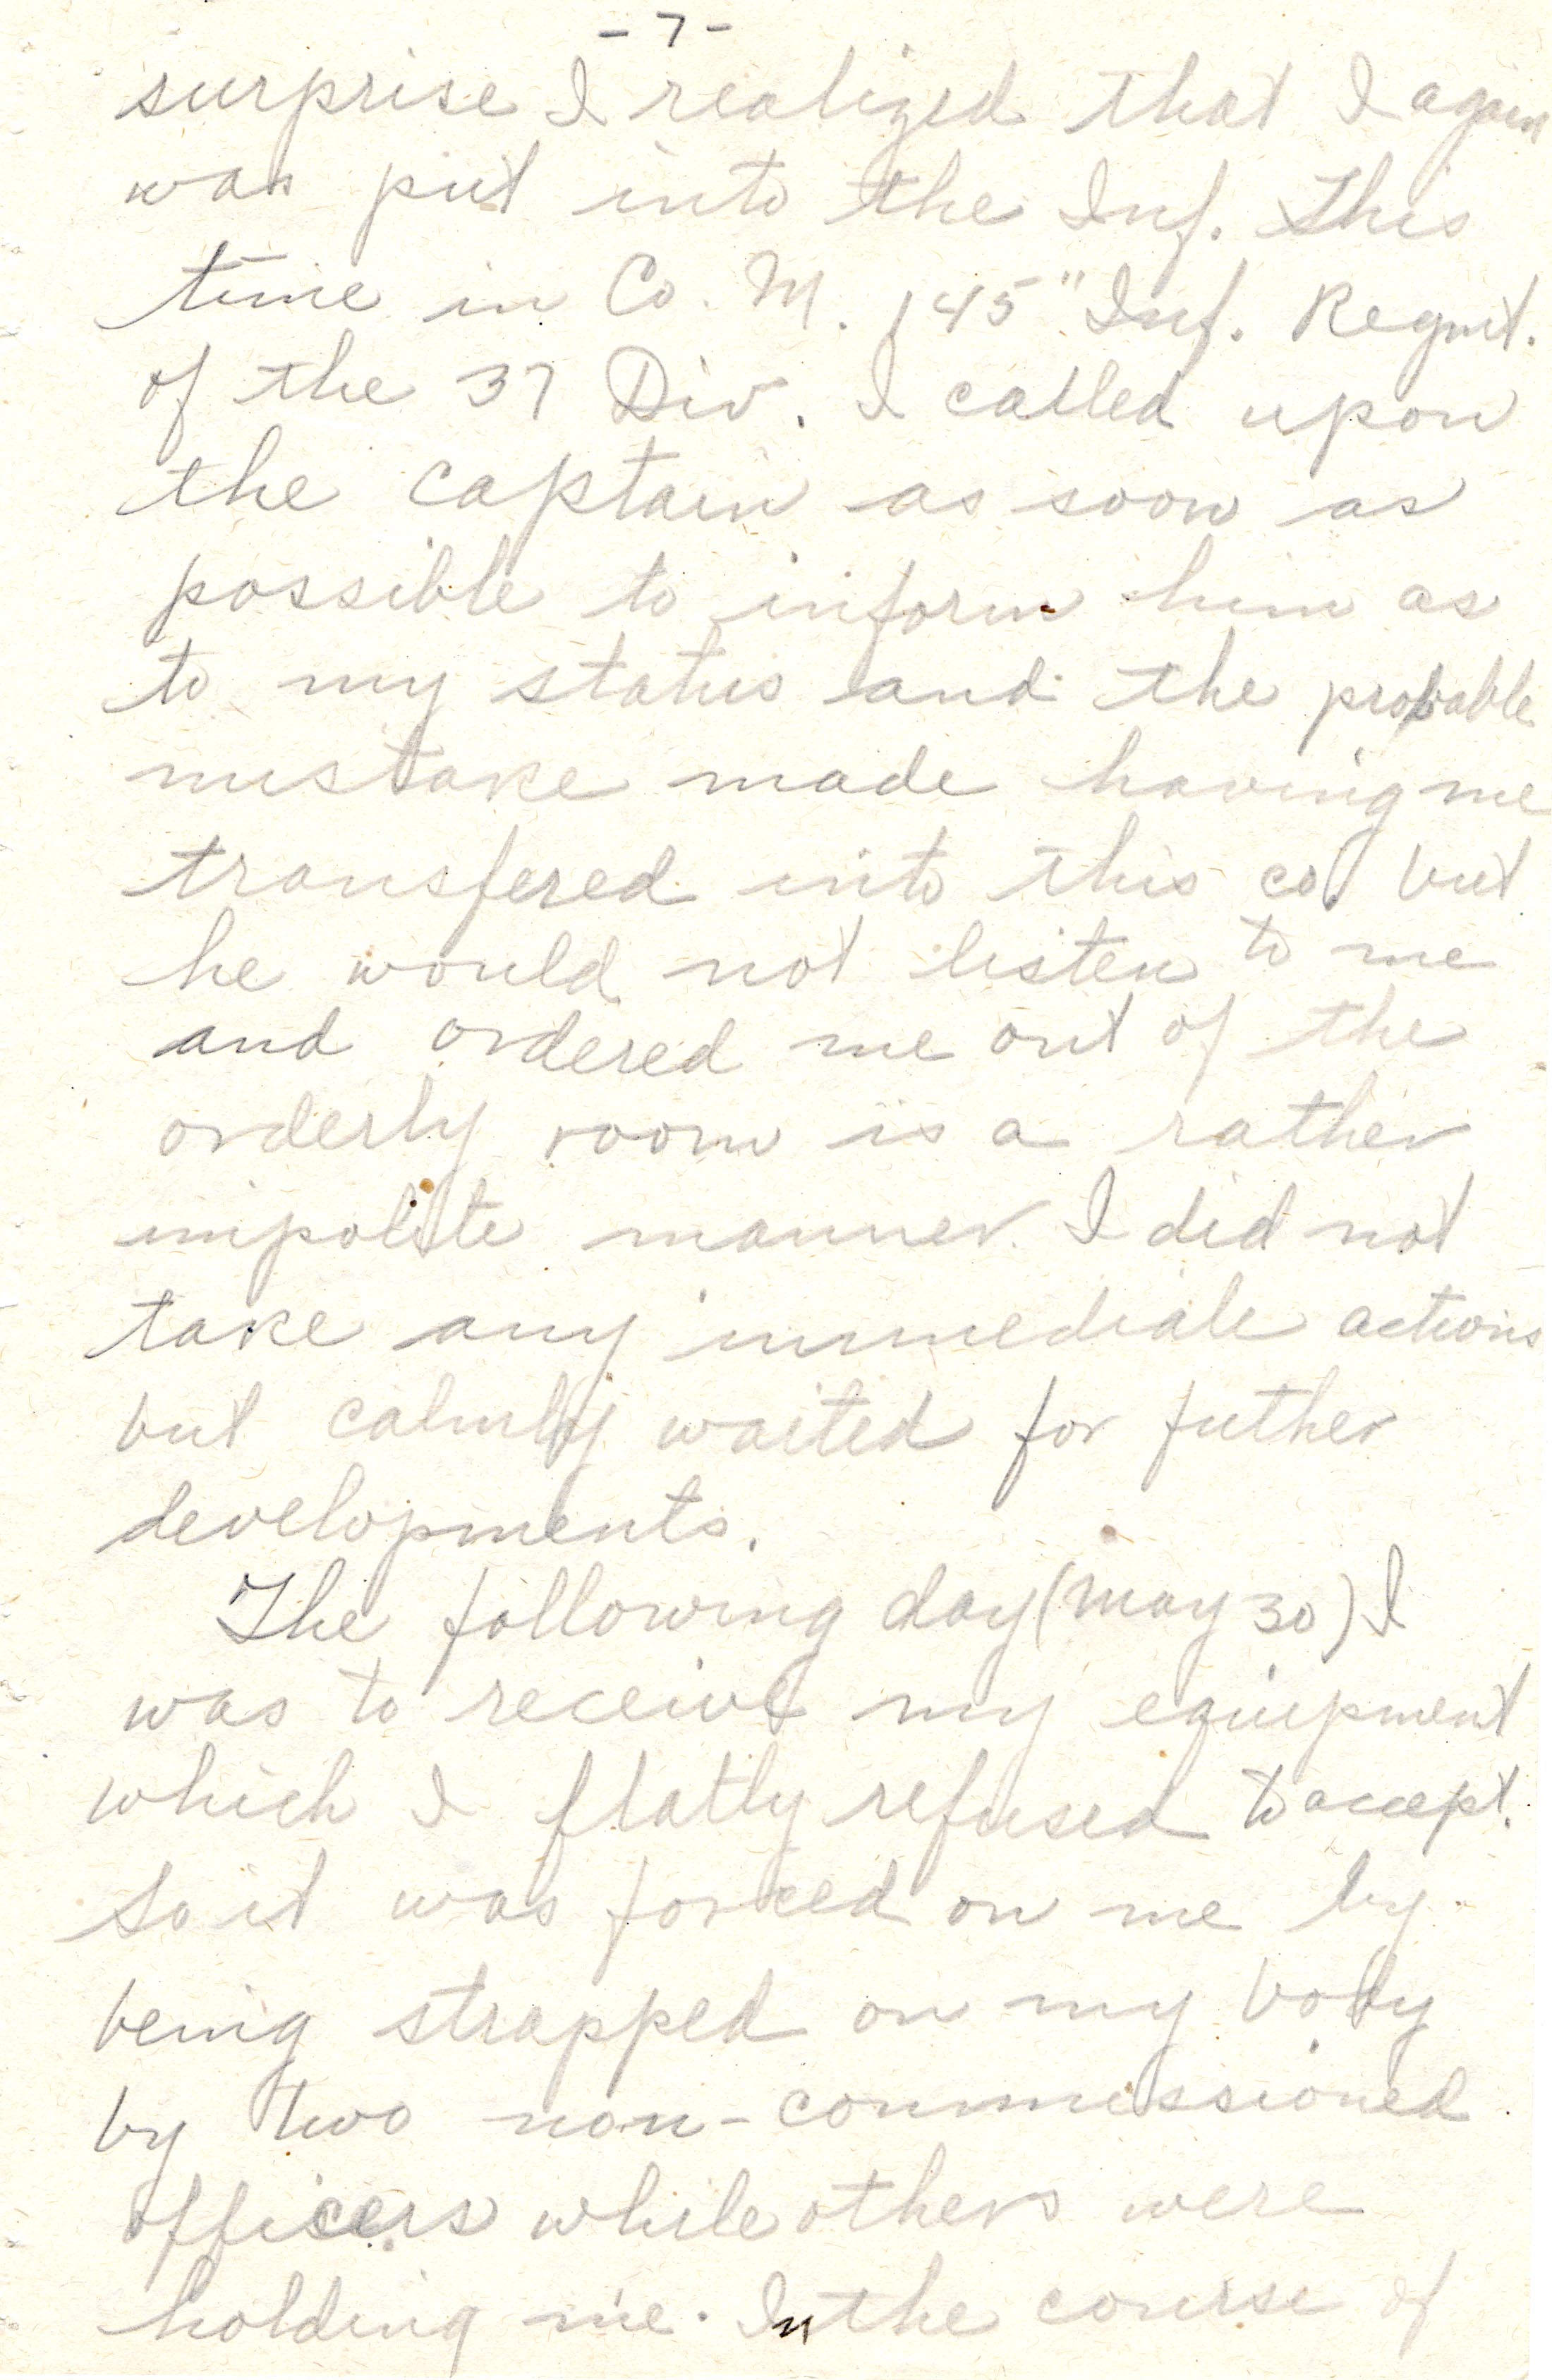 - 7 -
surprise I realized that I again
was put into the Inf. This
time in Co. M. 145" Inf. Regmt.
of the 37 Div. I called upon
the captain as soon as
possible to inform him as
to my status and the probable
mistake made having me
transfered into this co. but
he would not listen to me
and ordered me out of the
orderly room is a rather
impolite manner. I did not
take any immediate actions
but calmly waited for futher
developments.
The following day (May 30) I
was to receive my equipment
which I flatly refused to accept.
So it was forced on me by
being strapped on my body
by two non-commissioned
officers while others were
holding me. In the course of